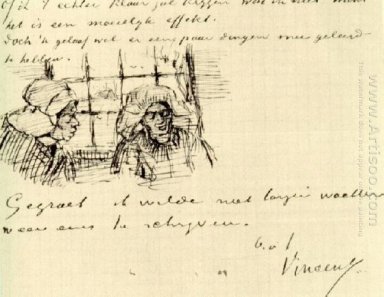 of ik 't echter klaar zal krijgen
het is een moeielijk effekt.
Doch 'k geloof wel er een paar dingen mee geleerd
te hebben.
Gegroet ik wilde niet langer wachten
weer eens te schrijven.
b.a t
Vincent
© www.Artisoo.com